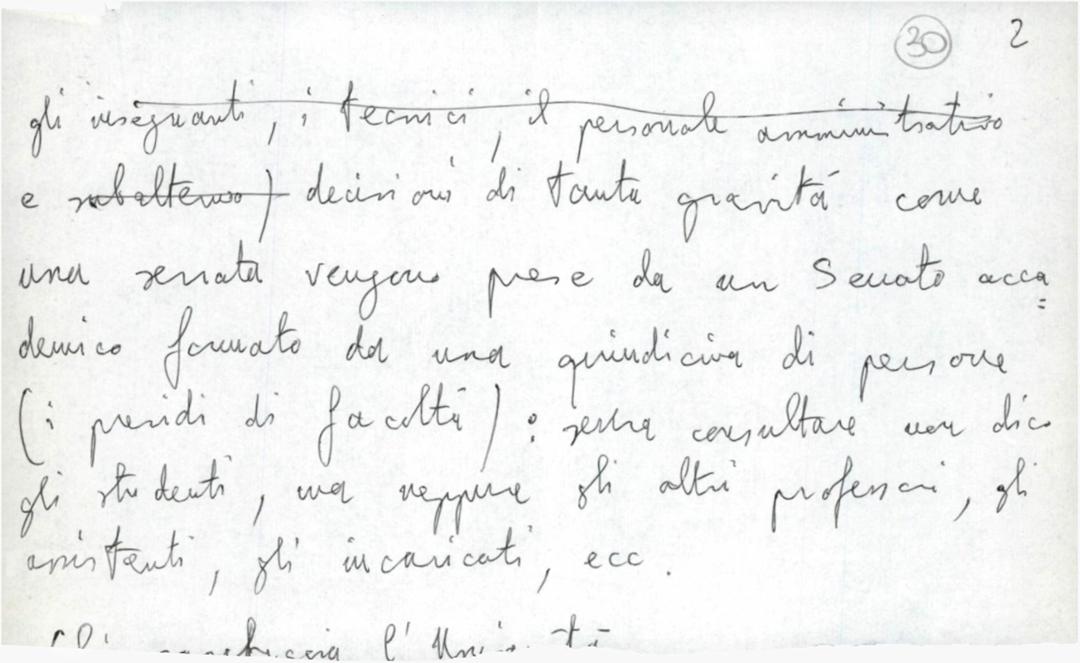 30 2
gli insegnanti, i tecnici, il personale amministrativo
e subalterno) decisioni di tanta gravità come
una serrata vengono prese da un Senato acca=
demico formato da una quindicina di persone
(i presidi di facoltà): senza consultare non dico
gli studenti, ma neppure gli altri professori, gli
assistenti, gli incaricati, ecc.
l'Università